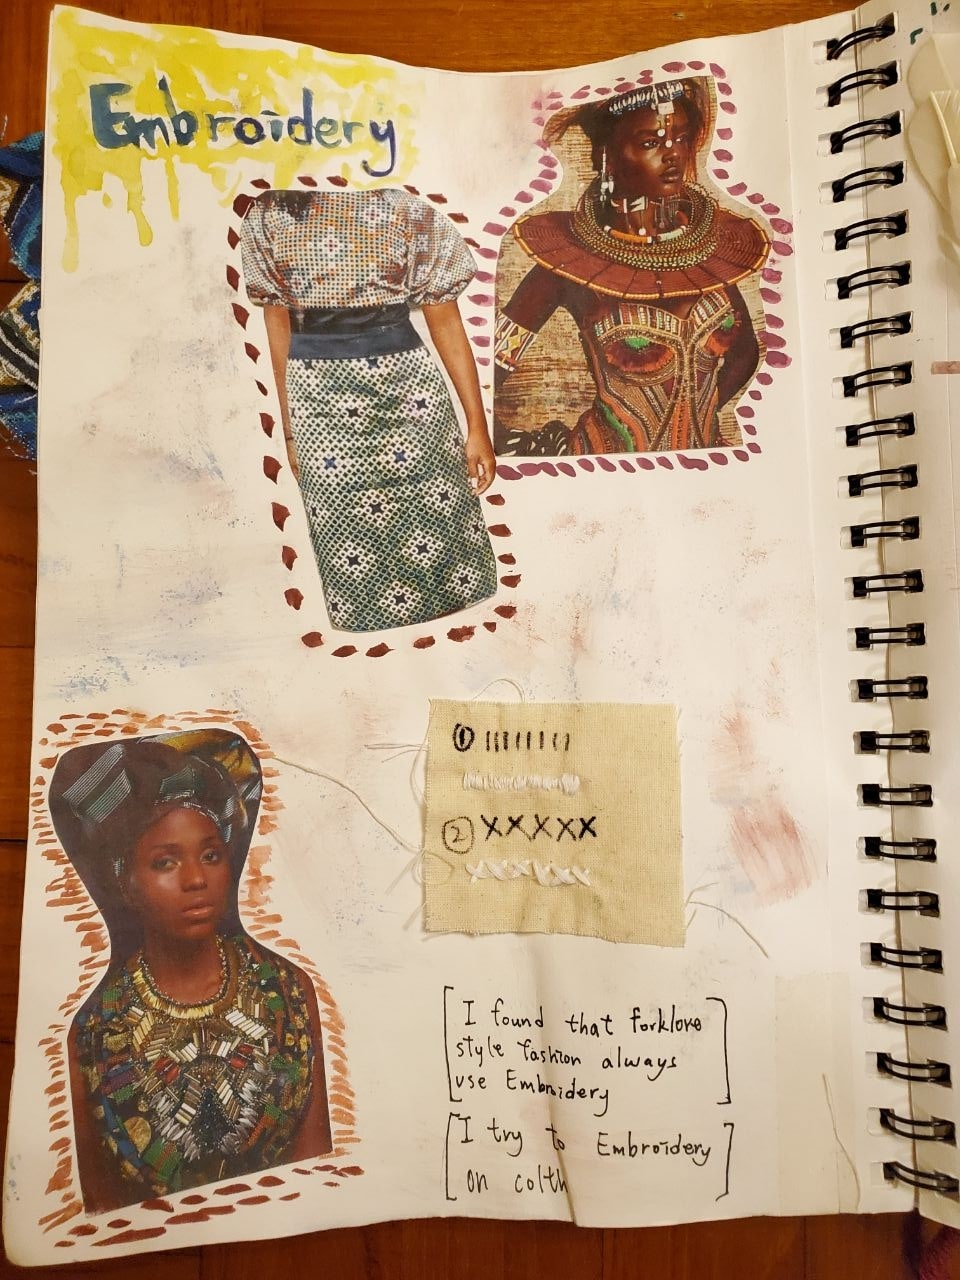 Embroidery
① ||||||||
② XXXXX
I found that forklore
style fashion always
use Embroidery
I try to Embroidery
on colth